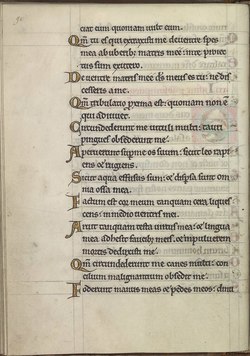 ciat eum quoniam uult eum.
Qm̄ tu es qui extraxisti me de uentre: spes
mea ab uberibꝰ matris mee: in te proiec
tus sum ex utero.
De uentre matris mee dē meus es tu: ne dis
cesseris a me.
Qm̄ tribulatio pxima est: quoniam non e
qui adiuuet.
Circumdederunt me uituli multi: tauri
pingues obsederunt me.
Aperuerunt sup me os suum: sicut leo rapi
ens & rugiens.
Sicut aqua effusus sum: & dispsa sunt om
nia ossa mea.
Factum est cor meum tanquam cera lique
scens: in medio uentris mei.
Aruit tanquam testa uirtus mea: & lingua
mea adhesit faucibꝰ meis: & in puluerem
mortis deduxisti me.
Qm̄ circumdederunt me canes multi: con
cilium malignantium obsedit me.
Foderunt manus meas & pedes meos: dinu